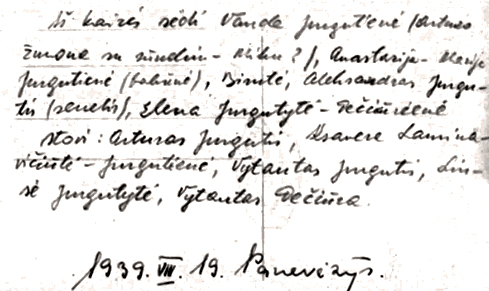 Iš kairės sėdi Vanda Jurgutienė (Arturo
žmona su sūnumi - Rimu?), Anastazija - Marija
Jurgutienė (babūnė), Birutė, Aleksandras Jurgu-
tis (senelis), Elena Jurgutytė - Pečiūrienė
stovi: Arturas Jurgutis, Ksavera Lamina-
vičiūtė - Jurgutienė, Vytautas Jurgutis,
Jurgutytė, Vytautas Pečiūra.
1939. VIII. 19. Panevėžys.